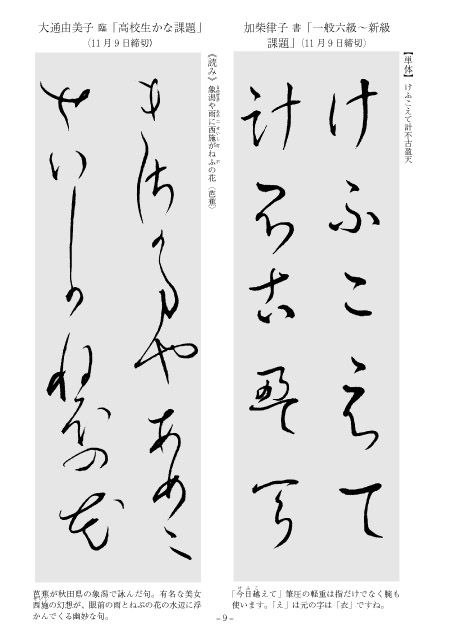 加柴律子 書「一般六級～新級
課題」(11月9日締切)
【単体】けふこえて計不古盈天
けふこえて
計不古盈天
「今日越えて」筆圧の軽重は指だけでなく腕も
使います。「え」は元の字は「衣」ですね。
大通由美子 臨「高校生かな課題」
(11月9日締切)
《読み》象潟や雨に西施がねぶの花〈芭蕉〉
きさかたやあめに
せいしかねふの花
芭蕉が秋田県の象潟で詠んだ句。有名な美女
西施の幻想が、眼前の雨とねぶの花の水辺に浮
かんでくる幽妙な句。
- 9 -